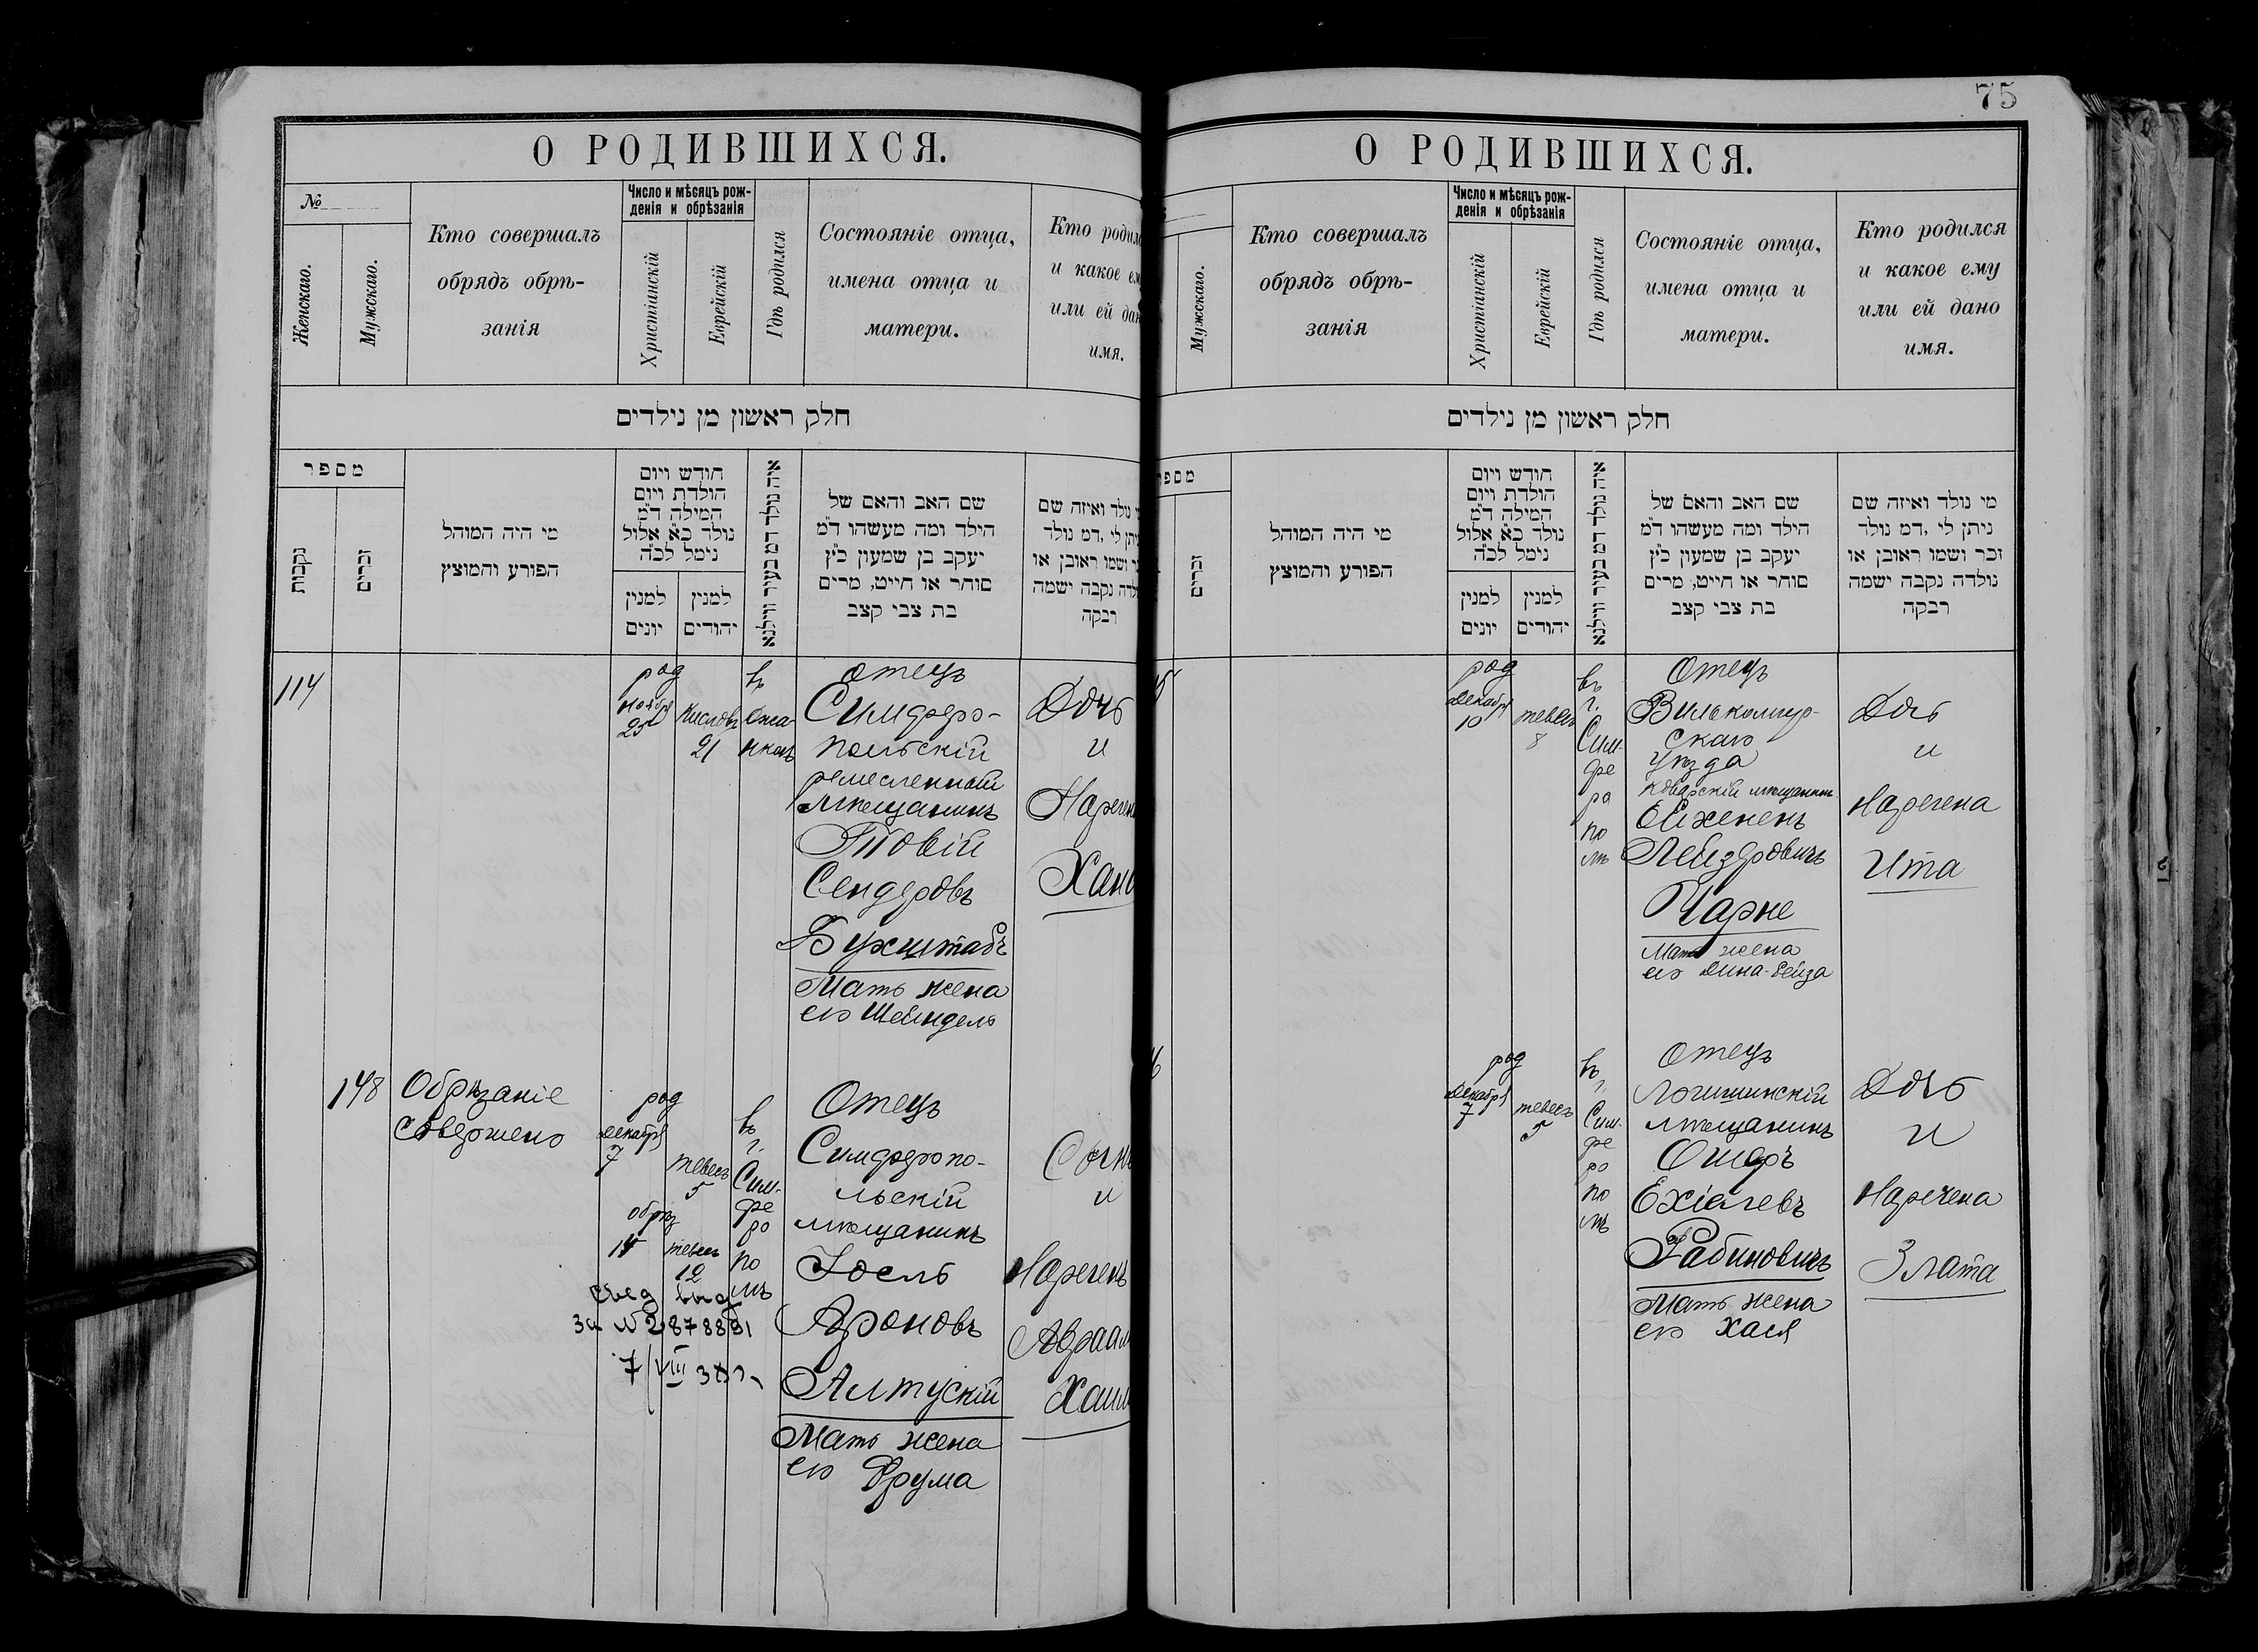 75
О РОДИВШИХСЯ.
№
Женскаго.
Мужскаго.
Кто совершалъ
обрядъ обрѣ-
занія
Число и мѣсяцъ рож-
денія и обрѣзанія
Христіанскій
Еврейскій
Гдѣ родился
Состояніе отца,
имена отца и
матери.
Кто
и какое
или ей
имя.
חלק ראשון מן נילדים
מספר
נקבות
זכרים
מי היה המוהל
הפורע והמוצץ
חודש ויום
הולדת ויום
המילה ד"מ
נולד כ"א אלול
נימל לכ"ה
למנין
יונים
למנין
יהודים
איה נולד דמ בעיר ווילנא
שם האב והאם של
הילד ומה מעשהו ד"מ
יעקב בן שמעון כ"ץ
סוחר או חייט, מרים
בת צבי קצב
נולד ואיזה שם
לי ,דמ נולד
ושמו ראובן או
נקבה ישמה
רבקה
114
род
Ноября
25
Кислевъ
21
въ
отецъ
Симферо-
польскій
ремесленный
мѣщанинъ
Товій
Сендеровъ
Бухштабъ
Мать жена
его Шейндель
Дочь
и
148
Обрѣзаніе
совершено
род
Декабря
7
тевесъ
5
обрѣз
14
тевесъ
12
свед выд
7/VIII
въ
г.
Сим-
фе
ро
по
лѣ
Отецъ
Симферопо-
льскій
мѣщанинъ
Іосль
Ароновъ
Алтускій
Мать жена
его Фрума
и
Нареченъ
О РОДИВШИХСЯ.
Мужскаго.
Кто совершалъ
обрядъ обрѣ-
занія
Число и мѣсяцъ рож-
денія и обрѣзанія
Христіанскій
Еврейскій
Гдѣ родился
Состояніе отца,
имена отца и
матери.
Кто родился
и какое ему
или ей дано
имя.
חלק ראשון מן נילדים
זכרים
מי היה המוהל
הפורע והמוצץ
חודש ויום
הולדת ויום
המילה ד"מ
נולד כ"א אלול
נימל לכ"ה
למנין
יונים
למנין
יהודים
איה נולד דמ בעיר ווילנא
שם האב והאם של
הילד ומה מעשהו ד"מ
יעקב בן שמעון כ"ץ
סוחר או חייט, מרים
בת צבי קצב
מי נולד ואיזה שם
ניתן לי ,דמ נולד
זכר ושמו ראובן או
נולדה נקבה ישמה
רבקה
род
Декабря
10
тевесъ
8
въ
г.
Сим-
фе
ро
по
лѣ
Отецъ
Вилькомир-
скаго
уѣзда
Коварскій мѣщанинъ
Лейзеровичъ
Чарне
Мать жена
его Дина-Рейза
Дочь
и
Наречена
Ита
род
Декабря
7
тевесъ
5
въ
г.
Сим-
фе
ро
по
лѣ
Отецъ
Логишинскій
мѣщанинъ
Ошеръ
Ехіелевъ
Рабиновичъ
Мать жена
его Хася
Дочь
и
Наречена
Злата